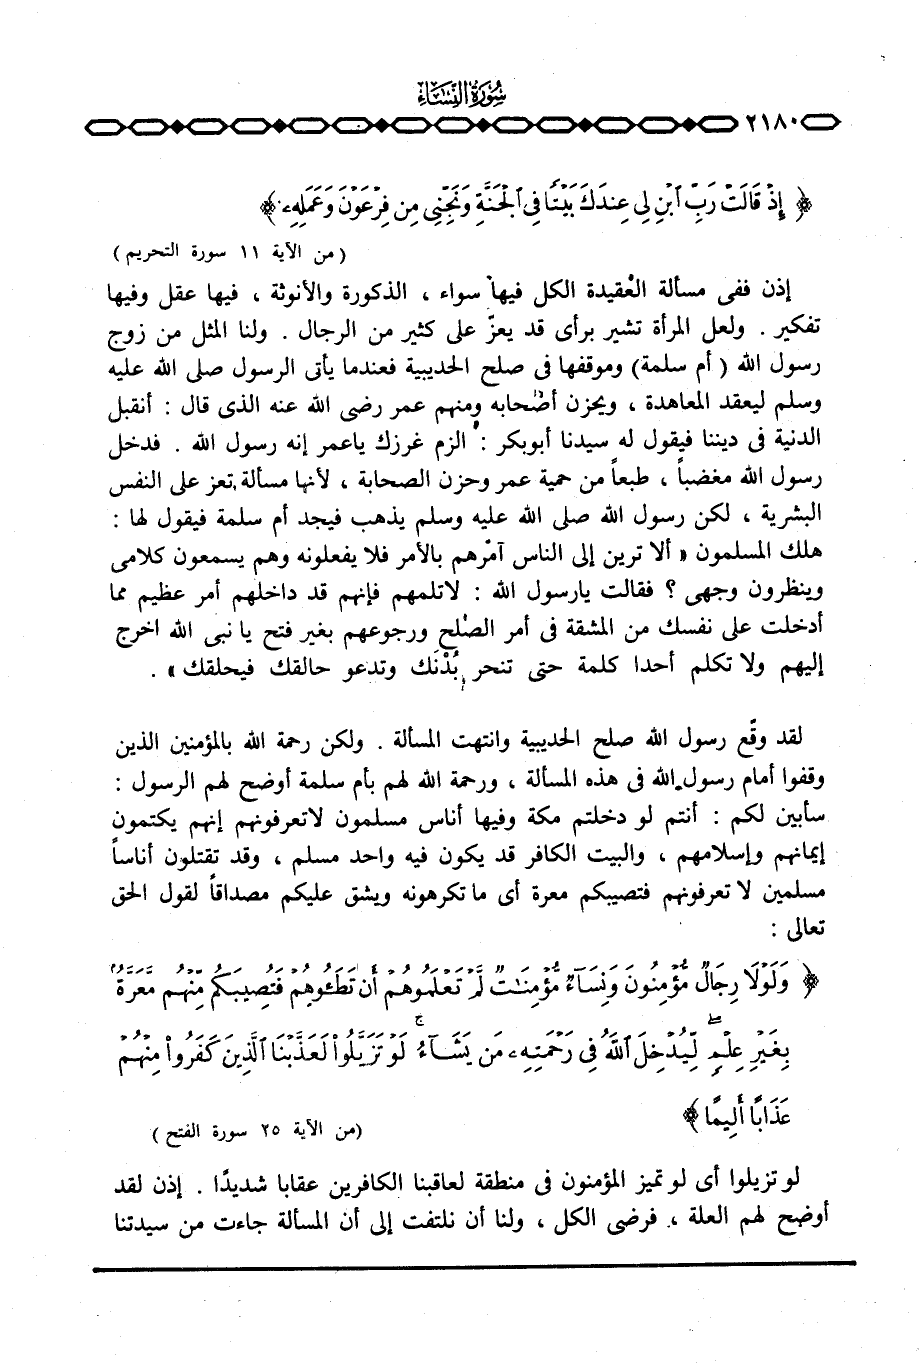 سُورَةُ النِّسَاءِ
٢١٨٠
﴿ إِذْ قَالَتْ رَبِّ ٱبْنِ لِى عِندَكَ بَيْتًا فِى ٱلْجَنَّةِ وَنَجِّنِى مِن فِرْعَوْنَ وَعَمَلِهِۦ ﴾
( من الآية ١١ سورة التحريم )
إذن ففى مسألة العقيدة الكل فيها سواء ، الذكورة والأنوثة ، فيها عقل وفيها
تفكير . ولعل المرأة تشير برأى قد يعزّ على كثير من الرجال . ولنا المثل من زوج
رسول الله ( أم سلمة ) وموقفها فى صلح الحديبية فعندما يأتى الرسول صلى الله عليه
وسلم ليعقد المعاهدة ، ويحزن أصحابه ومنهم عمر رضى الله عنه الذى قال : أنقبل
الدنية فى ديننا فيقول له سيدنا أبوبكر : الزم غرزك ياعمر إنه رسول الله . فدخل
رسول الله مغضباً ، طبعاً من حمية عمر وحزن الصحابة ، لأنها مسألة تعز على النفس
البشرية ، لكن رسول الله صلى الله عليه وسلم يذهب فيجد أم سلمة فيقول لها :
هلك المسلمون « ألا ترين إلى الناس آمرهم بالأمر فلا يفعلونه وهم يسمعون كلامى
وينظرون وجهى ؟ فقالت يارسول الله : لاتلمهم فإنهم قد داخلهم أمر عظيم مما
أدخلت على نفسك من المشقة فى أمر الصلح ورجوعهم بغير فتح يا نبى الله اخرج
إليهم ولا تكلم أحدا كلمة حتى تنحر بُدْنَك وتدعو حالقك فيحلقك » .
لقد وقّع رسول الله صلح الحديبية وانتهت المسألة . ولكن رحمة الله بالمؤمنين الذين
وقفوا أمام رسول الله فى هذه المسألة ، ورحمة الله لهم بأم سلمة أوضح لهم الرسول :
سأبين لكم : أنتم لو دخلتم مكة وفيها أناس مسلمون لاتعرفونهم إنهم يكتمون
إيمانهم وإسلامهم ، والبيت الكافر قد يكون فيه واحد مسلم ، وقد تقتلون أناساً
مسلمين لا تعرفونهم فتصيبكم معرة أى ما تكرهونه ويشق عليكم مصداقاً لقول الحق
تعالى :
﴿ وَلَوْلَا رِجَالٌ مُّؤْمِنُونَ وَنِسَآءٌ مُّؤْمِنَـٰتٌ لَّمْ تَعْلَمُوهُمْ أَن تَطَـُٔوهُمْ فَتُصِيبَكُم مِّنْهُم مَّعَرَّةٌۢ
بِغَيْرِ عِلْمٍۖ لِّيُدْخِلَ ٱللَّهُ فِى رَحْمَتِهِۦ مَن يَشَآءُۚ لَوْ تَزَيَّلُوا۟ لَعَذَّبْنَا ٱلَّذِينَ كَفَرُوا۟ مِنْهُمْ
عَذَابًا أَلِيمًا ﴾
(من الآية ٢٥ سورة الفتح )
لو تزيلوا أى لو تميز المؤمنون فى منطقة لعاقبنا الكافرين عقابا شديدًا . إذن لقد
أوضح لهم العلة ، فرضى الكل ، ولنا أن نلتفت إلى أن المسألة جاءت من سيدتنا